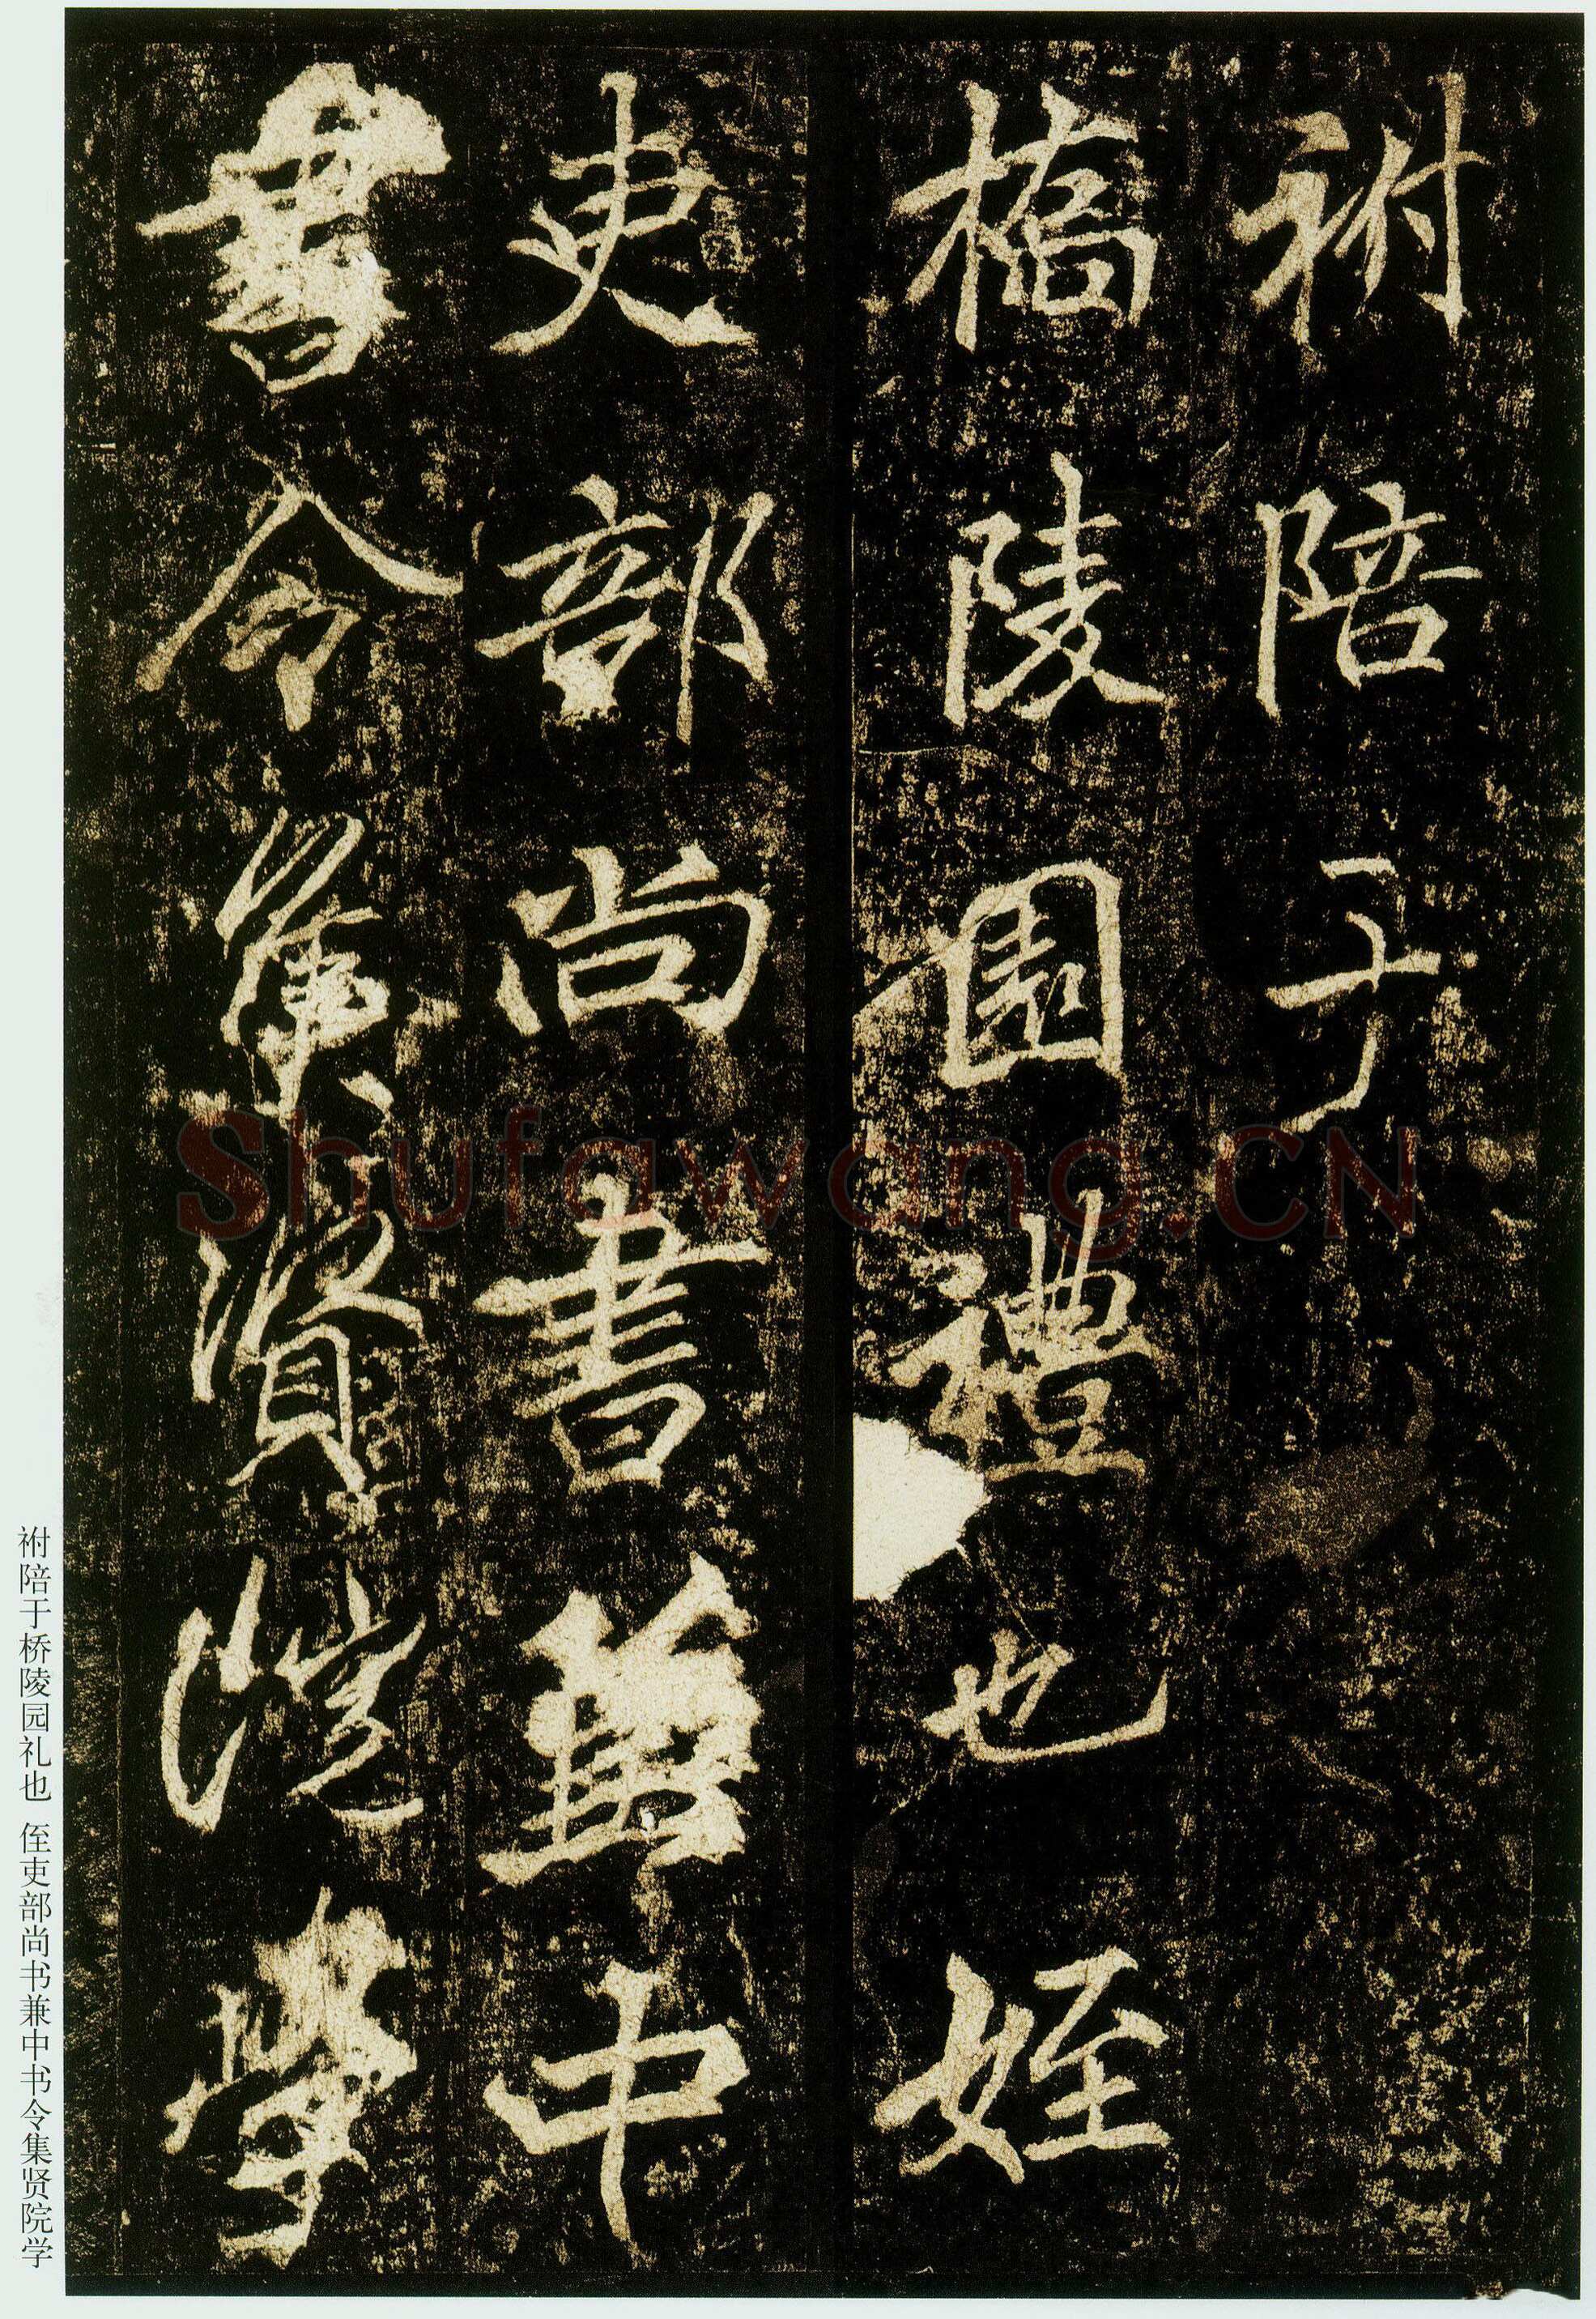 祔陪于
橋陵園禮也姪
吏部尚書兼中
書令集賢院學
祔陪于桥陵园礼也 侄吏部尚书兼中书令集贤院学
Shufawang.CN